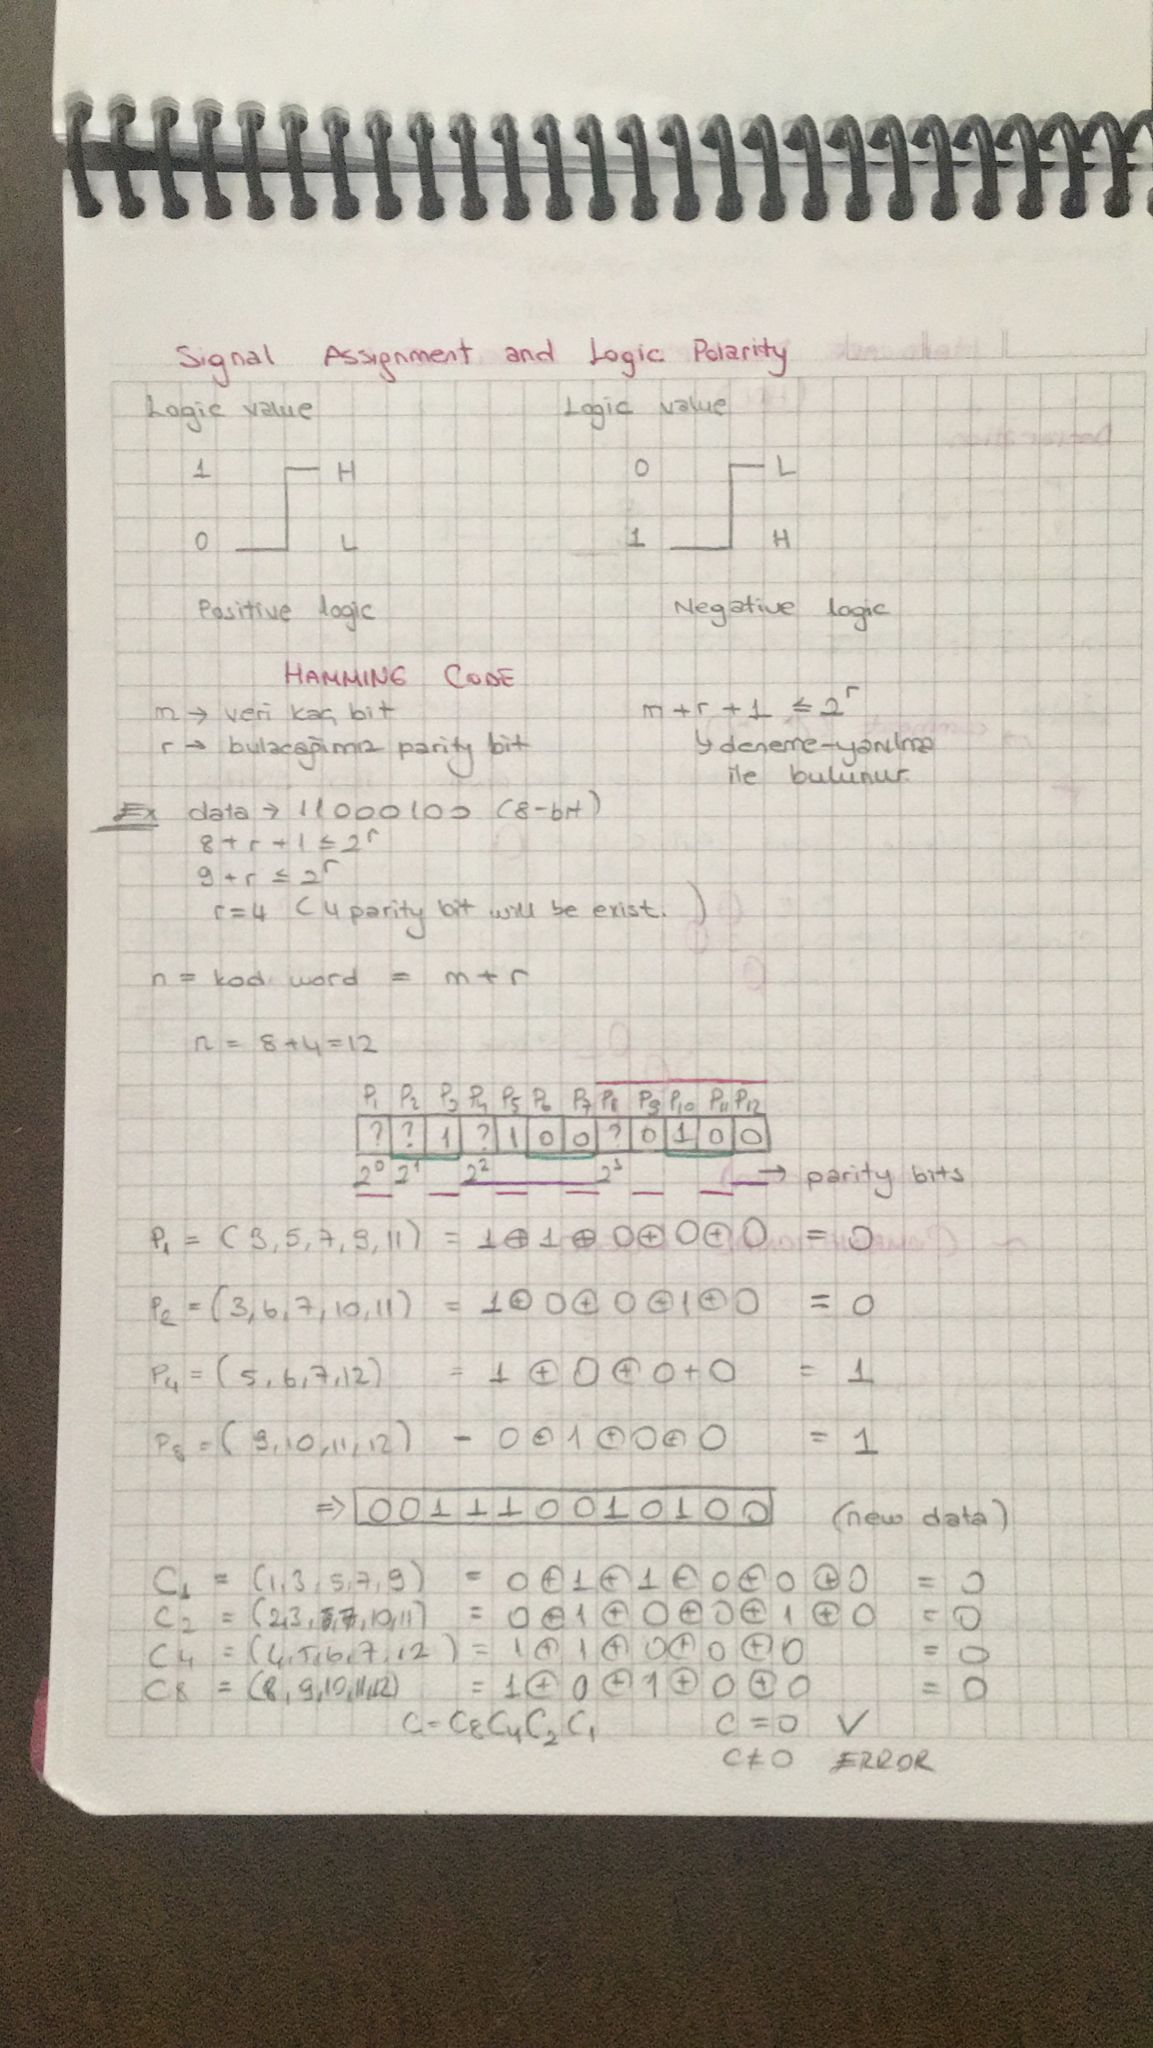 Signal Assignment and Logic Polarity
Logic value Logic value
1 H 0 L
0 L 1 H
Positive logic Negative logic
HAMMING CODE
m → veri kaç bit m + r + 1 ≤ 2^r
r → bulacağımız parity bit ↳ deneme-yanılma
ile bulunur.
Ex data → 11000100 (8-bit)
8 + r + 1 ≤ 2^r
9 + r ≤ 2^r
r = 4 (4 parity bit will be exist.)
n = kod word = m + r
n = 8+4=12
P1 P2 P3 P4 P5 P6 P7 P8 P9 P10 P11 P12
? ? 1 ? 1 0 0 ? 0 1 0 0
2^0 2^1 2^2 2^3 → parity bits
P1 = (3,5,7,9,11) = 1⊕1⊕0⊕0⊕0 = 0
P2 = (3,6,7,10,11) = 1⊕0⊕0⊕1⊕0 = 0
P4 = (5,6,7,12) = 1⊕0⊕0+0 = 1
P8 = (9,10,11,12) - 0⊕1⊕0⊕0 = 1
⇒ 001110010100 (new data)
C1 = (1,3,5,7,9) = 0⊕1⊕1⊕0⊕0⊕0 = 0
C2 = (2,3, 7,10,11) = 0⊕1⊕0⊕0⊕1⊕0 = 0
C4 = (4,5,6,7,12) = 1⊕1⊕0⊕0⊕0 = 0
C8 = (8,9,10,11,12) = 1⊕0⊕1⊕0⊕0 = 0
C = C8C4C2C1 C = 0 ✓
C ≠ 0 ERROR